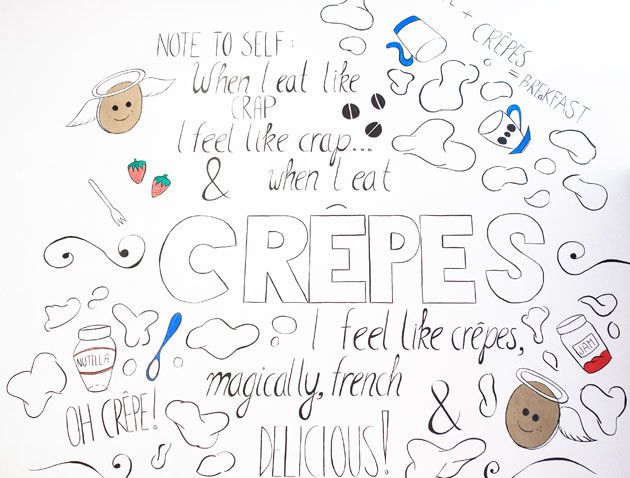 NOTE TO SELF:
When I eat like
CRAP
I feel like crap...
& when I eat
CRÊPES
I feel like crêpes,
magically, french
&
DELICIOUS!
+ CRÊPES
= BREKFAST
NUTILLA
OH CRÊPE!
JAM